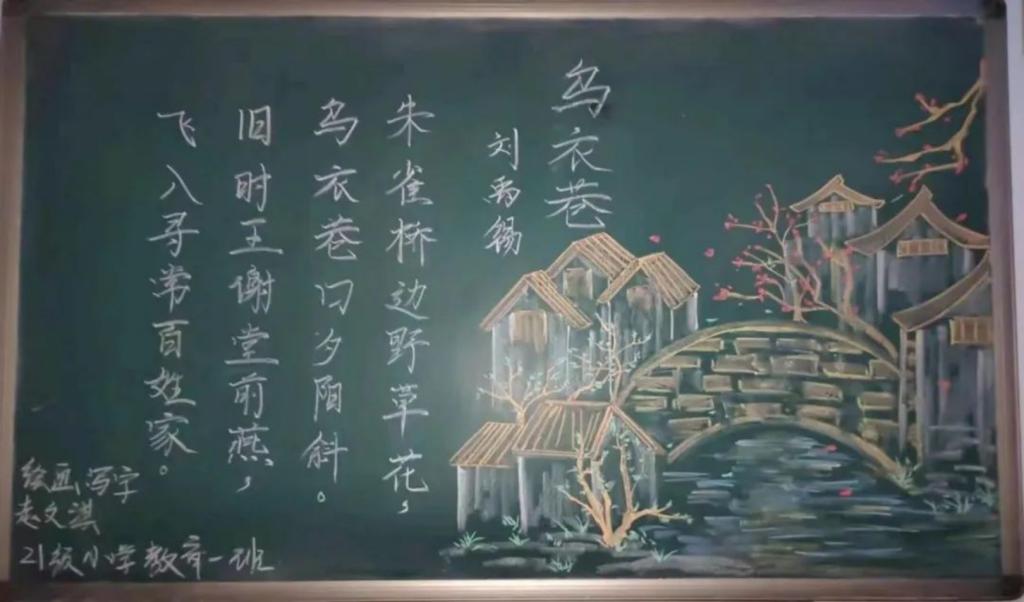 乌衣巷
刘禹锡
朱雀桥边野草花，
乌衣巷口夕阳斜。
旧时王谢堂前燕，
飞入寻常百姓家。
绘画，写字
文淇
21级小学教育一班